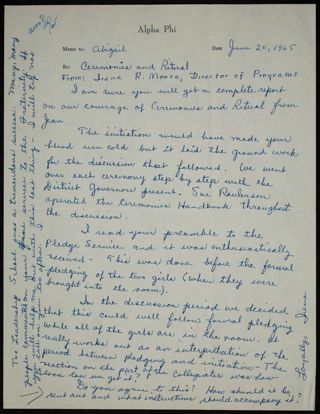 Alpha Phi
Memo to: Abigail Date June 20, 1965
Re: Ceremonies and Ritual
From: Irene R. Moore, Director of Programs
I am sure you will get a complete report
on our coverage of Ceremonies and Ritual from
Jean.
The initiation would have made your
blood run cold but it laid the ground work
for the discussion that followed. We went
over each ceremony step by step with the
District Governors present. Sue Raulerson
operated the Ceremonies Handbook throughout
the discussion.
I read your preamble to the
Pledge Service and it was enthusiastically
received - This was done before the formal
pledging of the two girls (when they were
brought into the room).
In the discussion period we decided
that this could well follow formal pledging
while all of the girls are in the room. It
really works out as an interpretation of the
period between pledging and initiation - The
reaction on the part of the Collegiates was how
soon can we get it?
Do you agree to this? How should it be
sent out and what instructions should accompany it?
Loyally, Irene
The Leadership School was a tremendous success. Many, many
people commented on your service to the Fraternity. If
you will help me execute this last thing - I will try not
to call on you too often :)